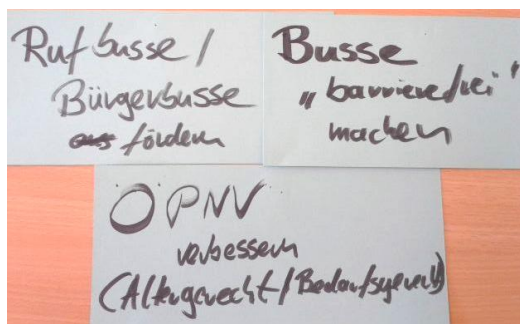 Rufbusse /
Bürgerbusse
fördern
Busse
"barrierefrei"
machen
ÖPNV
verbessern
(Altersgerecht / Bedarfsgerecht)